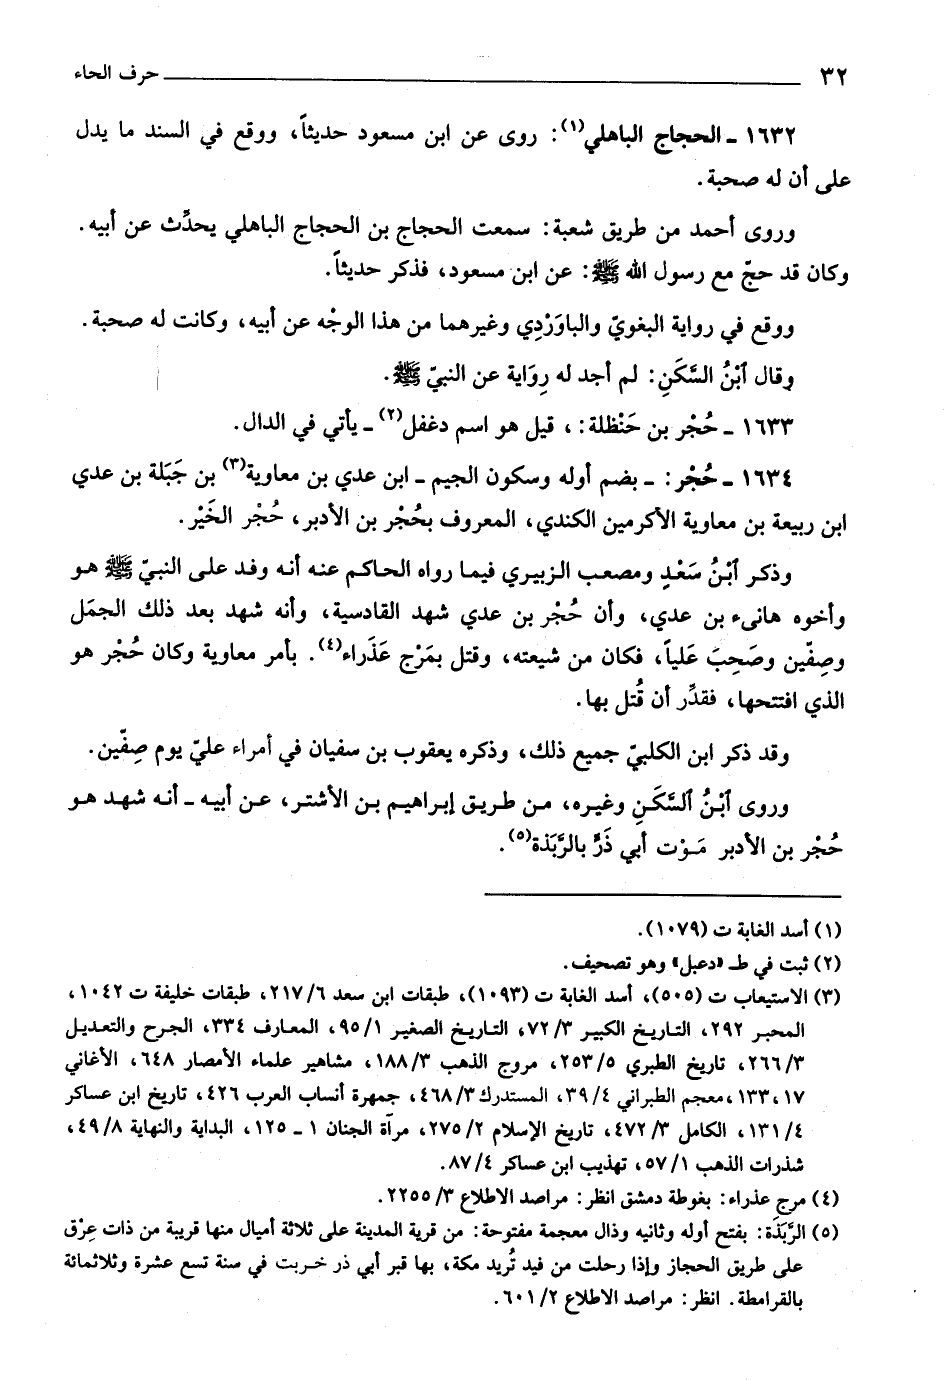 ٣٢ حرف الحاء
١٦٣٢ ـ الحجاج الباهلي(١): روى عن ابن مسعود حديثاً، ووقع في السند ما يدل
على أن له صحبة.
وروى أحمد من طريق شعبة: سمعت الحجاج بن الحجاج الباهلي يحدِّث عن أبيه.
وكان قد حجّ مع رسول الله ﷺ: عن ابن مسعود، فذكر حديثاً.
ووقع في رواية البغويّ والباوَرْدِي وغيرهما من هذا الوجْه عن أبيه، وكانت له صحبة.
وقال ٱبْنُ السَّكَنِ: لم أجد له رِوَاية عن النبيّ ﷺ.
١٦٣٣ ـ حُجْر بن حَنْظلة: ، قيل هو اسم دغفل(٢) ـ يأتي في الدال.
١٦٣٤ ـ حُجْر: ـ بضم أوله وسكون الجيم ـ ابن عدي بن معاوية(٣) بن جَبَلة بن عدي
ابن ربيعة بن معاوية الأكرمين الكندي، المعروف بحُجْر بن الأدبر، حُجْر الخَيْر.
وذكر ٱبْنُ سَعْدٍ ومصعب الزبيري فيما رواه الحاكم عنه أنه وفد على النبيّ ﷺ هو
وأخوه هانىء بن عدي، وأن حُجْر بن عدي شهد القادسية، وأنه شهد بعد ذلك الجمَل
وصِفّين وصَحِبَ عَلياً، فكان من شيعته، وقتل بمَرْج عَذَراء(٤). بأمر معاوية وكان حُجْر هو
الذي افتتحها، فقدِّر أن قُتل بها.
وقد ذكر ابن الكلبيّ جميع ذلك، وذكره يعقوب بن سفيان في أمراء عليّ يوم صِفّين.
وروى ٱبْنُ ٱلسَّكَنِ وغيره، من طريق إبراهيم بن الأشتر، عن أبيه ـ أنه شهد هو
حُجْر بن الأدبر مَوْت أبي ذَرٍّ بالرَّبَذة(٥).
(١) أسد الغابة ت (١٠٧٩).
(٢) ثبت في طـ «دعبل» وهو تصحيف.
(٣) الاستيعاب ت (٥٠٥)، أسد الغابة ت (١٠٩٣)، طبقات ابن سعد ٢١٧/٦، طبقات خليفة ت ١٠٤٢،
المحبر ٢٩٢، التاريخ الكبير ٧٢/٣، التاريخ الصغير ٩٥/١، المعارف ٣٣٤، الجرح والتعديل
٢٦٦/٣، تاريخ الطبري ٢٥٣/٥، مروج الذهب ١٨٨/٣، مشاهير علماء الأمصار ٦٤٨، الأغاني
١٣٣،١٧ ،معجم الطبراني ٣٩/٤، المستدرك ٤٦٨/٣، جمهرة أنساب العرب ٤٢٦، تاريخ ابن عساكر
١٣١/٤، الكامل ٤٧٢/٣، تاريخ الإسلام ٢٧٥/٢، مرآة الجنان ١ ـ ١٢٥، البداية والنهاية ٤٩/٨،
شذرات الذهب ٥٧/١، تهذيب ابن عساكر ٨٧/٤.
(٤) مرج عذراء: بغوطة دمشق انظر: مراصد الاطلاع ٢٢٥٥/٣.
(٥) الرَّبَذَة: بفتح أوله وثانيه وذال معجمة مفتوحة: من قرية المدينة على ثلاثة أميال منها قريبة من ذات عِرْق
على طريق الحجاز وإذا رحلت من فيد تُريد مكة، بها قبر أبي ذر خربت في سنة تسع عشرة وثلاثمائة
بالقرامطة. انظر: مراصد الاطلاع ٦٠١/٢.